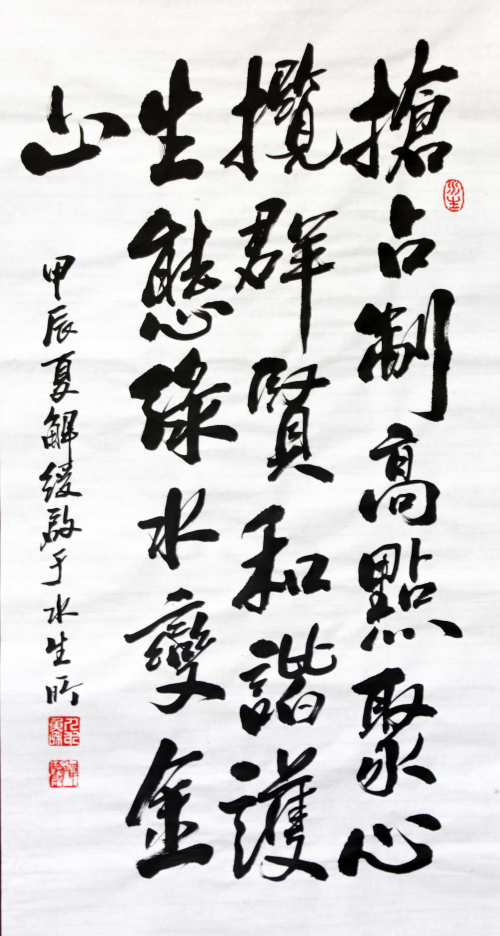 搶占制高點聚心
攬群賢和諧護
生態綠水變金
山
甲辰夏解緩啟于水生